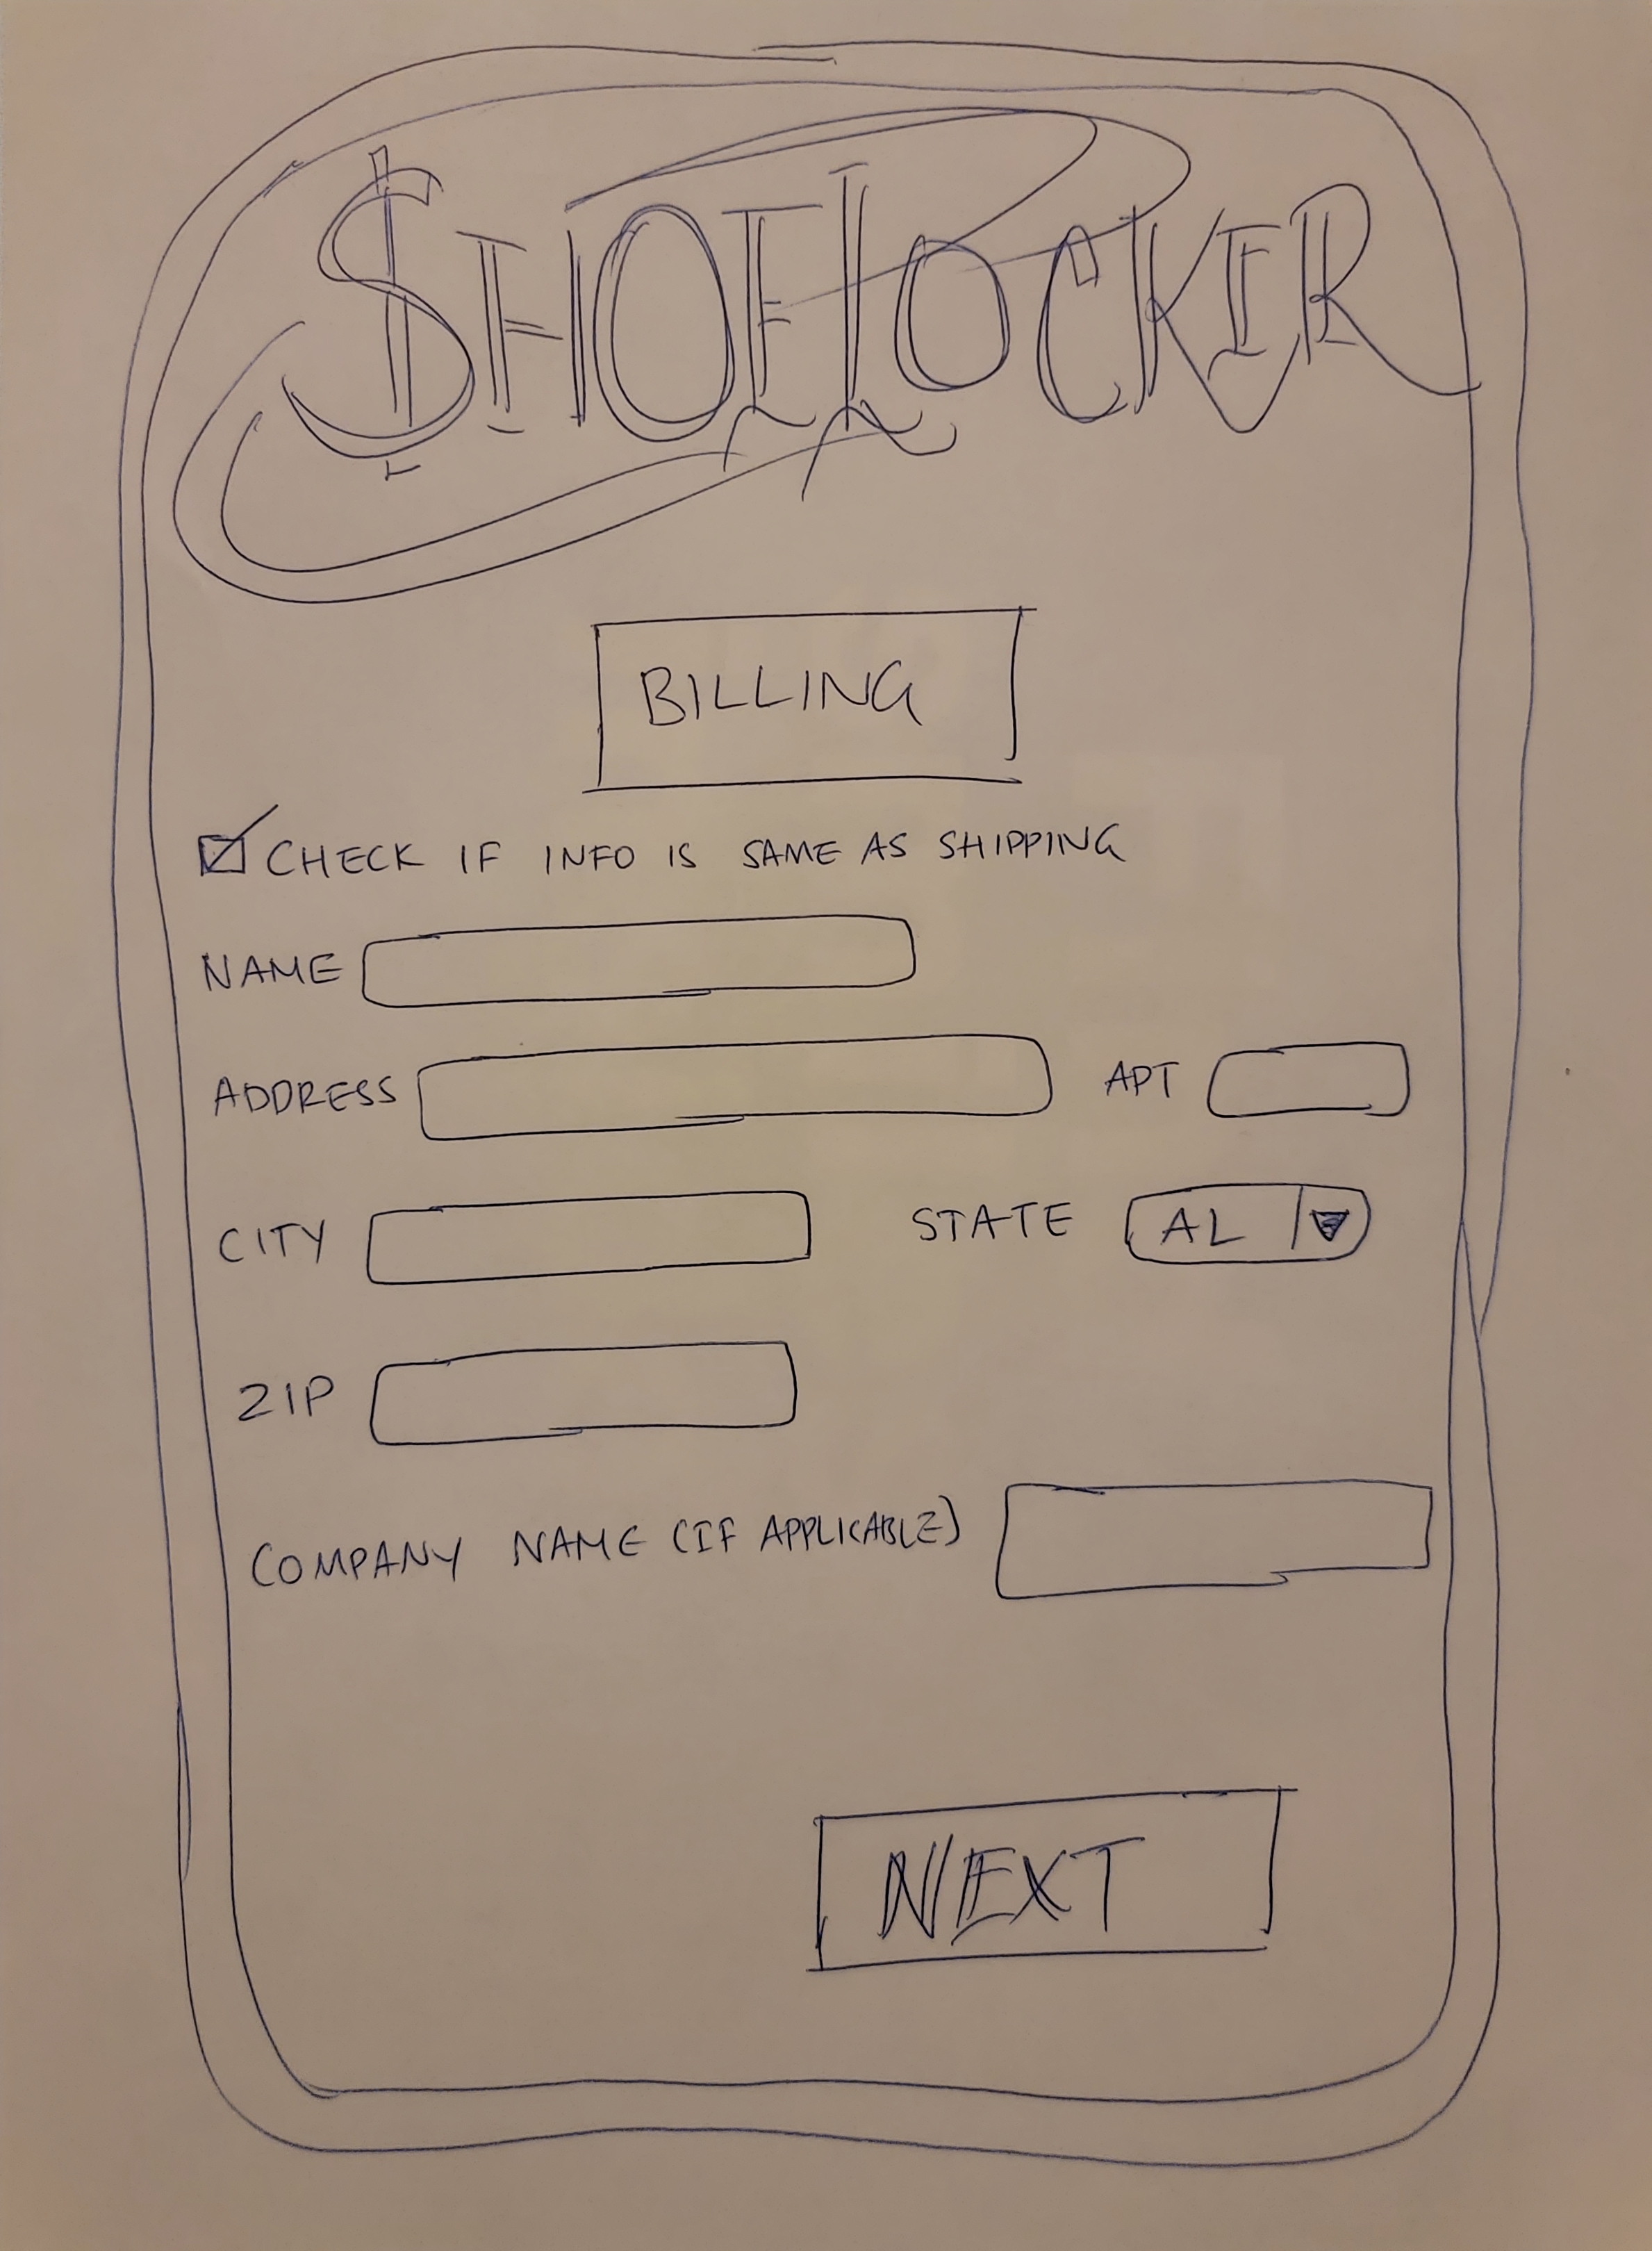 $HOELOCKER
BILLING
CHECK IF INFO IS SAME AS SHIPPING
NAME
ADDRESS APT
CITY STATE AL
ZIP
COMPANY NAME (IF APPLICABLE)
NEXT